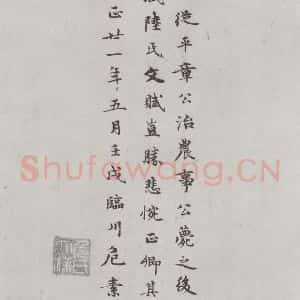 從平章公治農事公薨之後
陸氏文賦豈勝悲惋正卿其
正廿一年五月壬戌臨川危素
Shufawang.CN